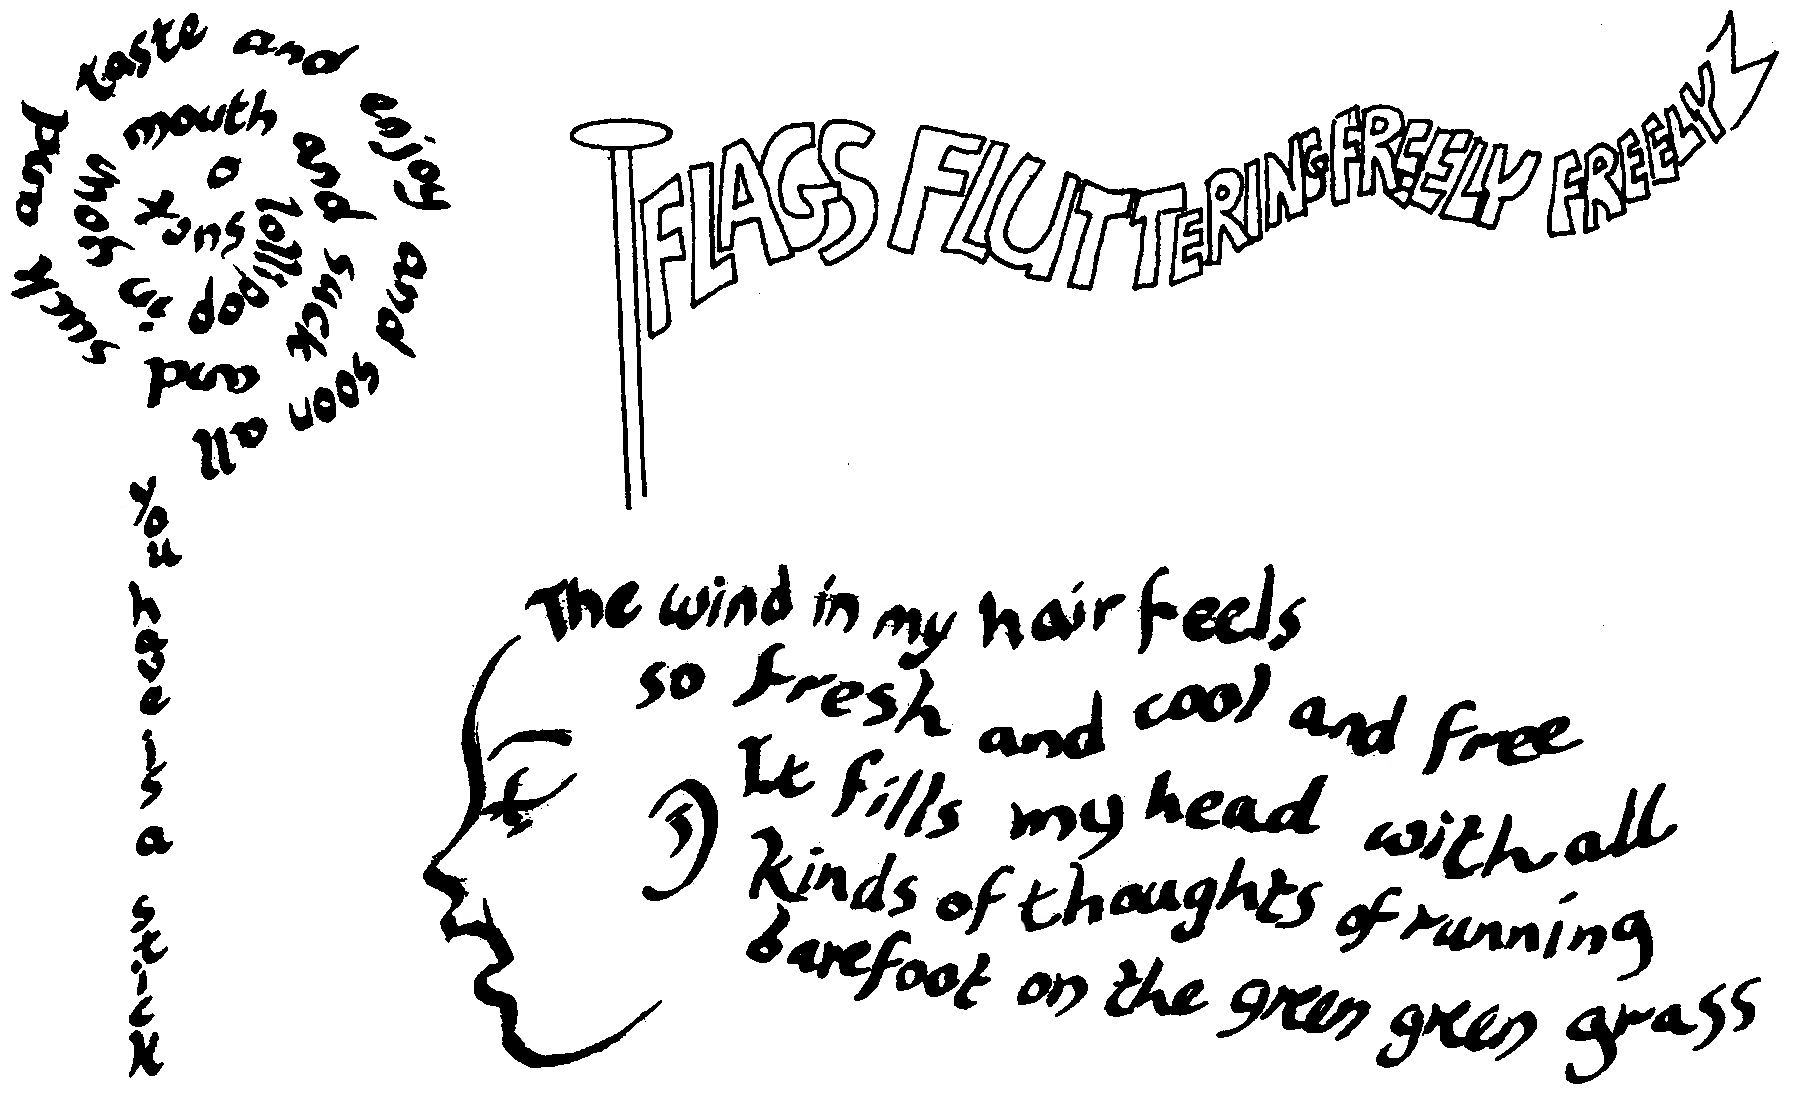 suck a lollipop in your mouth and suck and suck and taste and enjoy and soon all you have is a stick
FLAGS FLUTTERING FREELY FREELY
The wind in my hair feels
so fresh and cool and free
It fills my head with all
kinds of thoughts of running
barefoot on the green green grass